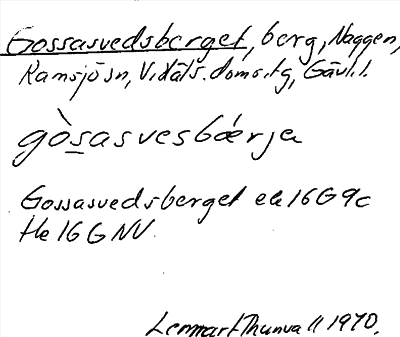 Gossasvedsberget, berg, Naggen,
Ramsjö sn, V. Häls. doms.tg, Gävl.l.
gòsasvesbǽrja
Gossasvedsberget ek 16G9c
He 16 G NV
Lennart Thunvall 1970.